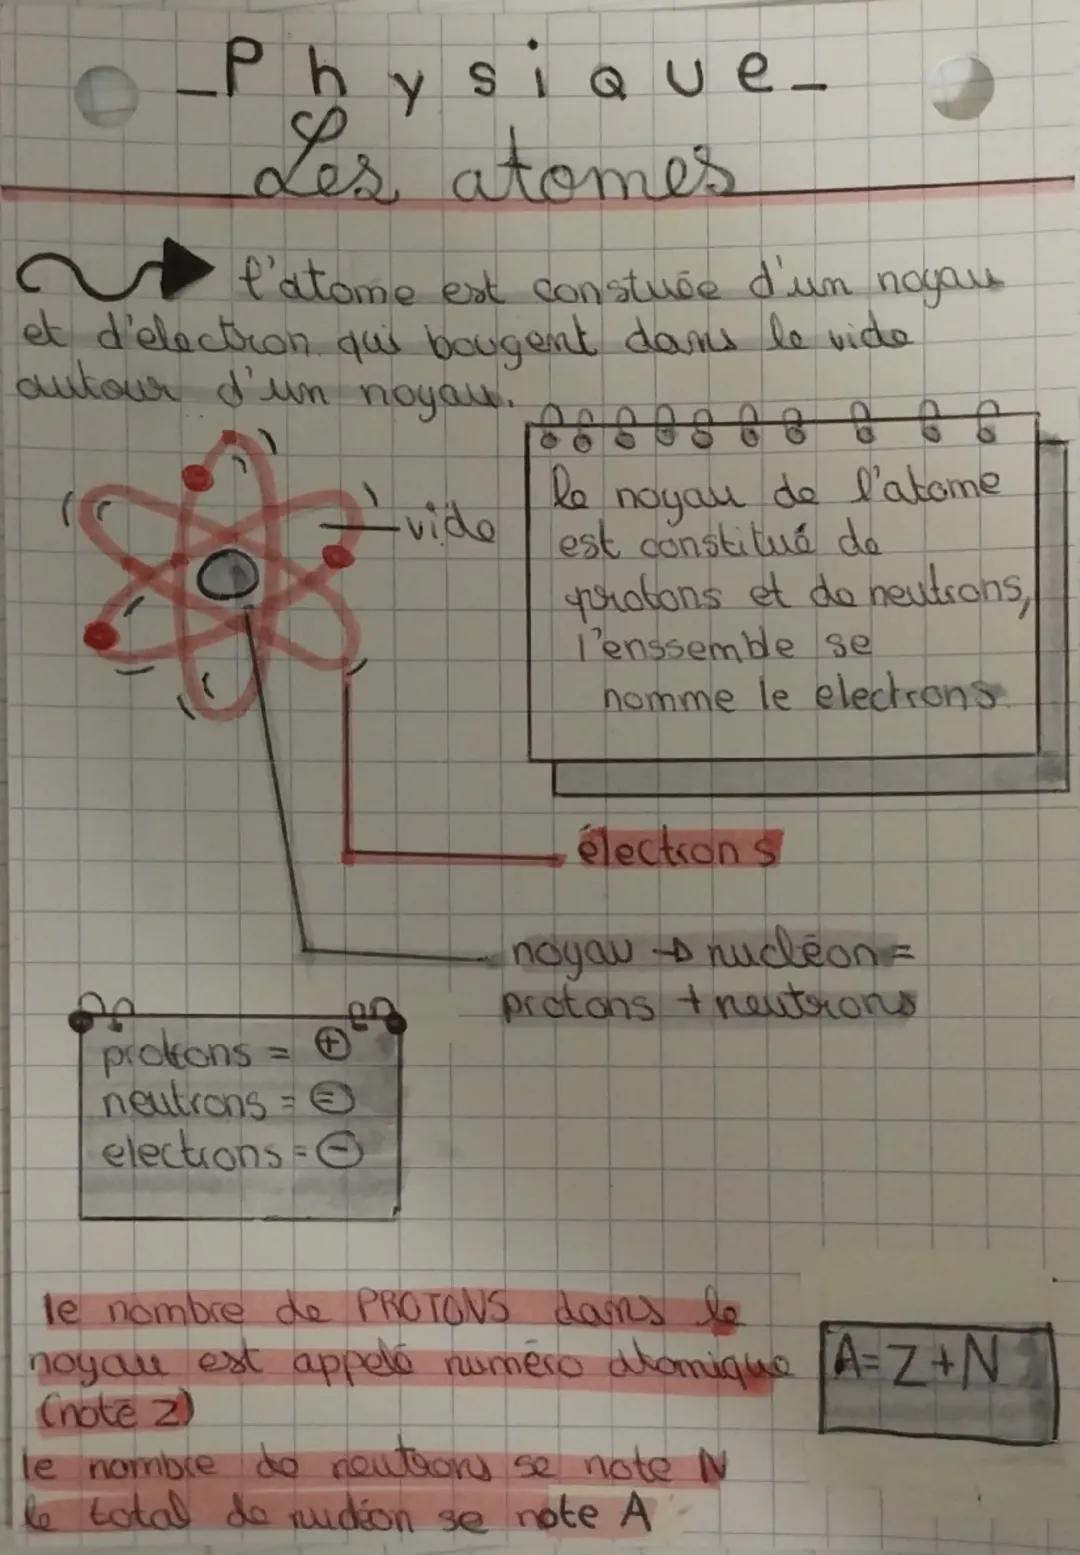 _Physique_
Les atomes
l'atome est constuée d'un noyau
et d'électron qui bougent dans le vide
autour d'un noyau.
vide
le noyau de l'atome
est constitué de
protons et de neutrons,
l'enssemble se
nomme le electrons.
électrons
noyau → nucléon =
protons + neutrons
protons = ⊕
neutrons = ⊜
electrons = ⊖
le nombre de PROTONS dans le
noyau est appelé numéro atomique
(noté Z)
le nombre de neutrons se note N
le total de nucléon se note A
A=Z+N